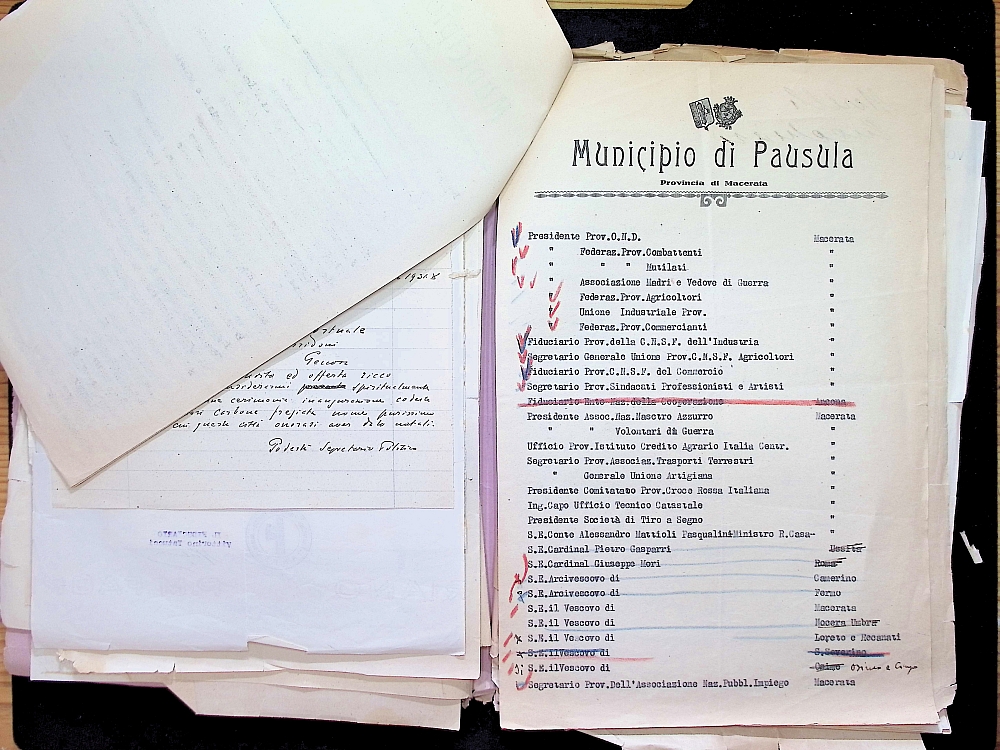 1931.X
Geccon
ed offerto ricco
spiritualmente
cerimonia inaugurazione
carbone fregiata nome purissimo
questa città onorasi aver dato natali.
Podestà Segretario Politico
Municipio di Pausula
Provincia di Macerata
Presidente Prov.O.N.D. Macerata
" Federaz.Prov.Combattenti "
" " " Mutilati "
" Associazione Madri e Vedove di Guerra "
" Federaz.Prov.Agricoltori "
" Unione Industriale Prov. "
" Federaz.Prov.Commercianti "
Fiduciario Prov.della C.N.S.F. dell'Industria "
Segretario Generale Unione Prov.C.N.S.F. Agricoltori "
Fiduciario Prov.C.N.S.F. del Commercio "
Segretario Prov.Sindacati Professionisti e Artisti "
Fiduciario Ente Naz.della Cooperazione Ancona
Presidente Assoc.Naz.Nastro Azzurro Macerata
" " Volontari di Guerra "
Ufficio Prov.Istituto Credito Agrario Italia Centr. "
Segretario Prov.Associaz.Trasporti Terrestri "
" Generale Unione Artigiana "
Presidente Comitatato Prov.Croce Rossa Italiana "
Ing.Capo Ufficio Tecnico Catastale "
Presidente Società di Tiro a Segno "
S.E.Conte Alessandro Mattioli Pasqualini Ministro R.Casa- "
S.E.Cardinal Pietro Gasparri Ussita
S.E.Cardinal Giuseppe Mori Roma
S.E.Arcivescovo di Camerino
S.E.Arcivescovo di Fermo
S.E.il Vescovo di Macerata
S.E.il Vescovo di Nocera Umbra
S.E.il Vescovo di Loreto e Recanati
S.E.ilVescovo di S.Severino
S.E.ilVescovo di Osimo Osimo e Cingo
Segretario Prov.Dell'Associazione Naz.Pubbl.Impiego Macerata